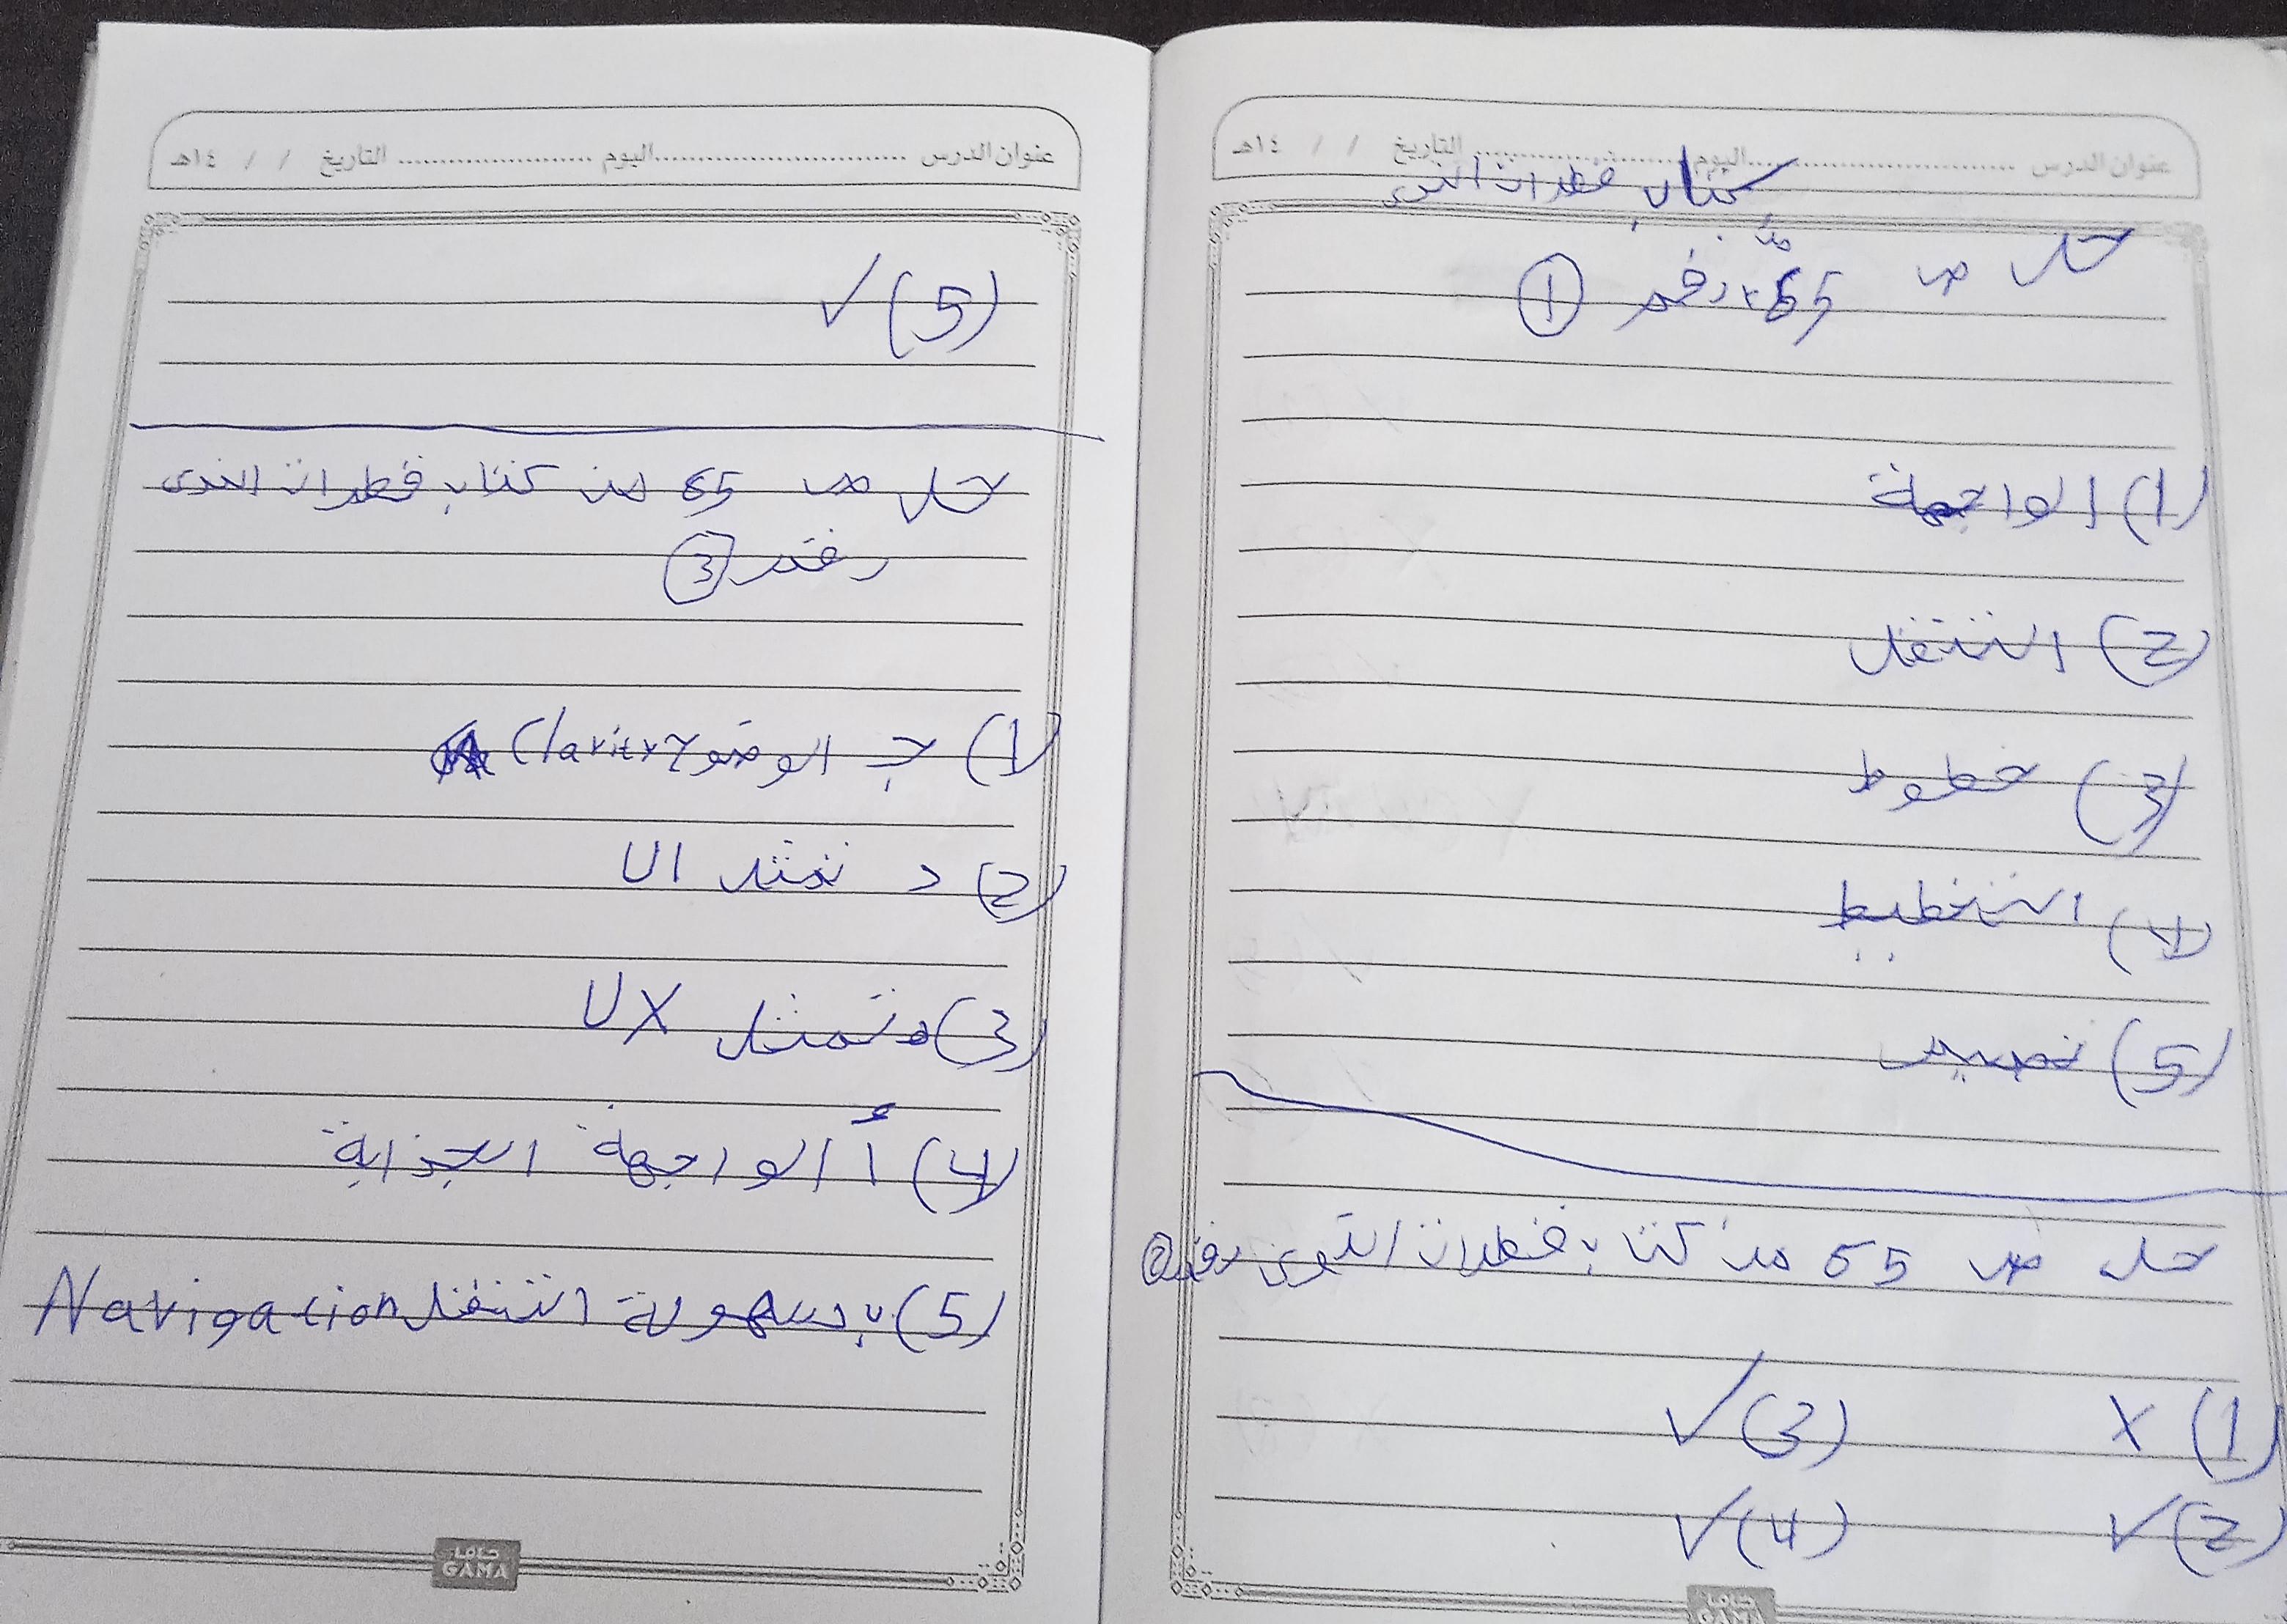 عنوان الدرس ........ اليوم ........ التاريخ / / ١٤هـ
كتاب قطرات الندى
حل ص 65 رقم ①
(1) الواجهة
(2) التنقل
(3) خطوط
(4) التخطيط
(5) تصميم
حل ص 65 من كتاب قطرات الندى رقم ②
(1) X (3) ✓
(2) ✓ (4) ✓
جاما
GAMA
عنوان الدرس ........ اليوم ........ التاريخ / / ١٤هـ
(5) ✓
حل ص 65 من كتاب قطرات الندى
رقم ③
(1) جـ الوضوح Clarity
(2) د تمثل UI
(3) هـ تمثل UX
(4) أ الواجهة الجذابة
(5) ب سهولة التنقل Navigation
جاما
GAMA